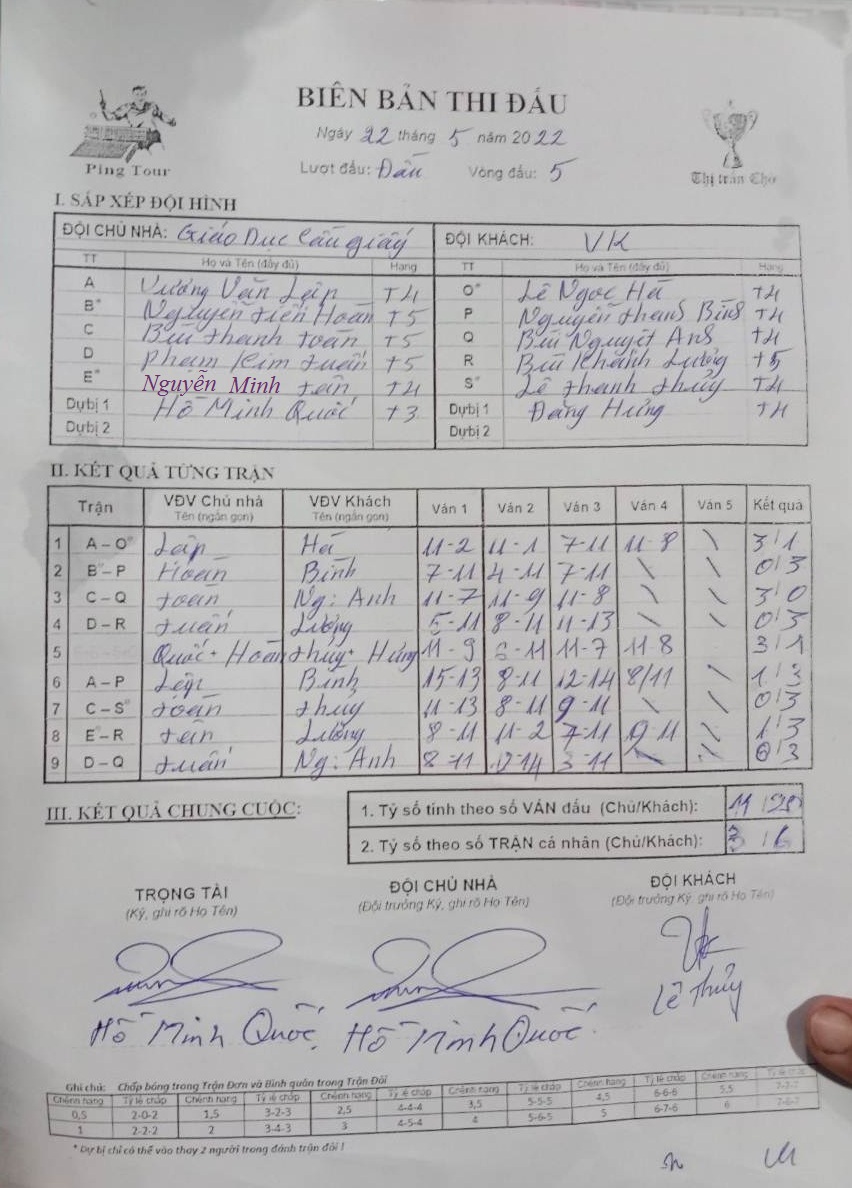 BIÊN BẢN THI ĐẤU
Ngày 22 tháng 5 năm 2022
Lượt đấu: Đấu Vòng đấu: 5
Ping Tour
Thị trấn Chờ
I. SẮP XẾP ĐỘI HÌNH
ĐỘI CHỦ NHÀ: Giáo Dục Cầu giấy ĐỘI KHÁCH: VK
TT Họ và Tên (đầy đủ) Hạng TT Họ và Tên (đầy đủ) Hạng
A Vương Văn Lập T4 O* Lê Ngọc Hà T4
B* Nguyễn tiến Hoàn T5 P Nguyễn thanh Bình T4
C Bùi thanh toàn T5 Q Bùi Nguyệt Anh T4
D Phạm Kim tuấn T5 R Bùi Khánh Lưỡng T5
E* Nguyễn Minh tân T4 S* Lê thanh thủy T4
Dự bị 1 Hồ Minh Quốc T3 Dự bị 1 Đặng Hưng T4
Dự bị 2 Dự bị 2
II. KẾT QUẢ TỪNG TRẬN
Trận VĐV Chủ nhà VĐV Khách Ván 1 Ván 2 Ván 3 Ván 4 Ván 5 Kết quả
Tên (ngắn gọn) Tên (ngắn gọn)
1 A – O* Lập Hà 11-2 11-1 7-11 11-8 \ 3/1
2 B* – P Hoàn Bình 7-11 4-11 7-11 \ \ 0/3
3 C – Q toàn Ng: Anh 11-7 11-9 11-8 \ \ 3/0
4 D – R tuấn Lưỡng 5-11 8-11 11-13 \ \ 0/3
5 Quốc + Hoàn thủy + Hưng 11-9 6-11 11-7 11-8 3/1
6 A – P Lập Bình 15-13 8-11 12-14 8/11 \ 1/3
7 C – S* toàn thủy 11-13 8-11 9-11 \ \ 0/3
8 E* – R tân Lưỡng 8-11 11-2 7-11 9-11 \ 1/3
9 D – Q tuấn Ng: Anh 8-11 12-14 3-11 \ \ 0/3
III. KẾT QUẢ CHUNG CUỘC:
1. Tỷ số tính theo số VÁN đấu (Chủ/Khách): 11/20
2. Tỷ số theo số TRẬN cá nhân (Chủ/Khách): 3/6
TRỌNG TÀI ĐỘI CHỦ NHÀ ĐỘI KHÁCH
(Ký, ghi rõ Họ Tên) (Đội trưởng Ký, ghi rõ Họ Tên) (Đội trưởng Ký, ghi rõ Họ Tên)
Hồ Minh Quốc. Hồ Minh Quốc. Lê Thủy
Ghi chú: Chấp bóng trong Trận Đơn và Bình quân trong Trận Đôi
Chênh hạng Tỷ lệ chấp Chênh hạng Tỷ lệ chấp Chênh hạng Tỷ lệ chấp Chênh hạng Tỷ lệ chấp Chênh hạng Tỷ lệ chấp Chênh hạng Tỷ lệ chấp
0,5 2-0-2 1,5 3-2-3 2,5 4-4-4 3,5 5-5-5 4,5 6-6-6 5,5 7-7-7
1 2-2-2 2 3-4-3 3 4-5-4 4 5-6-5 5 6-7-6 6
* Dự bị chỉ có thể vào thay 2 người trong đánh trận đôi !